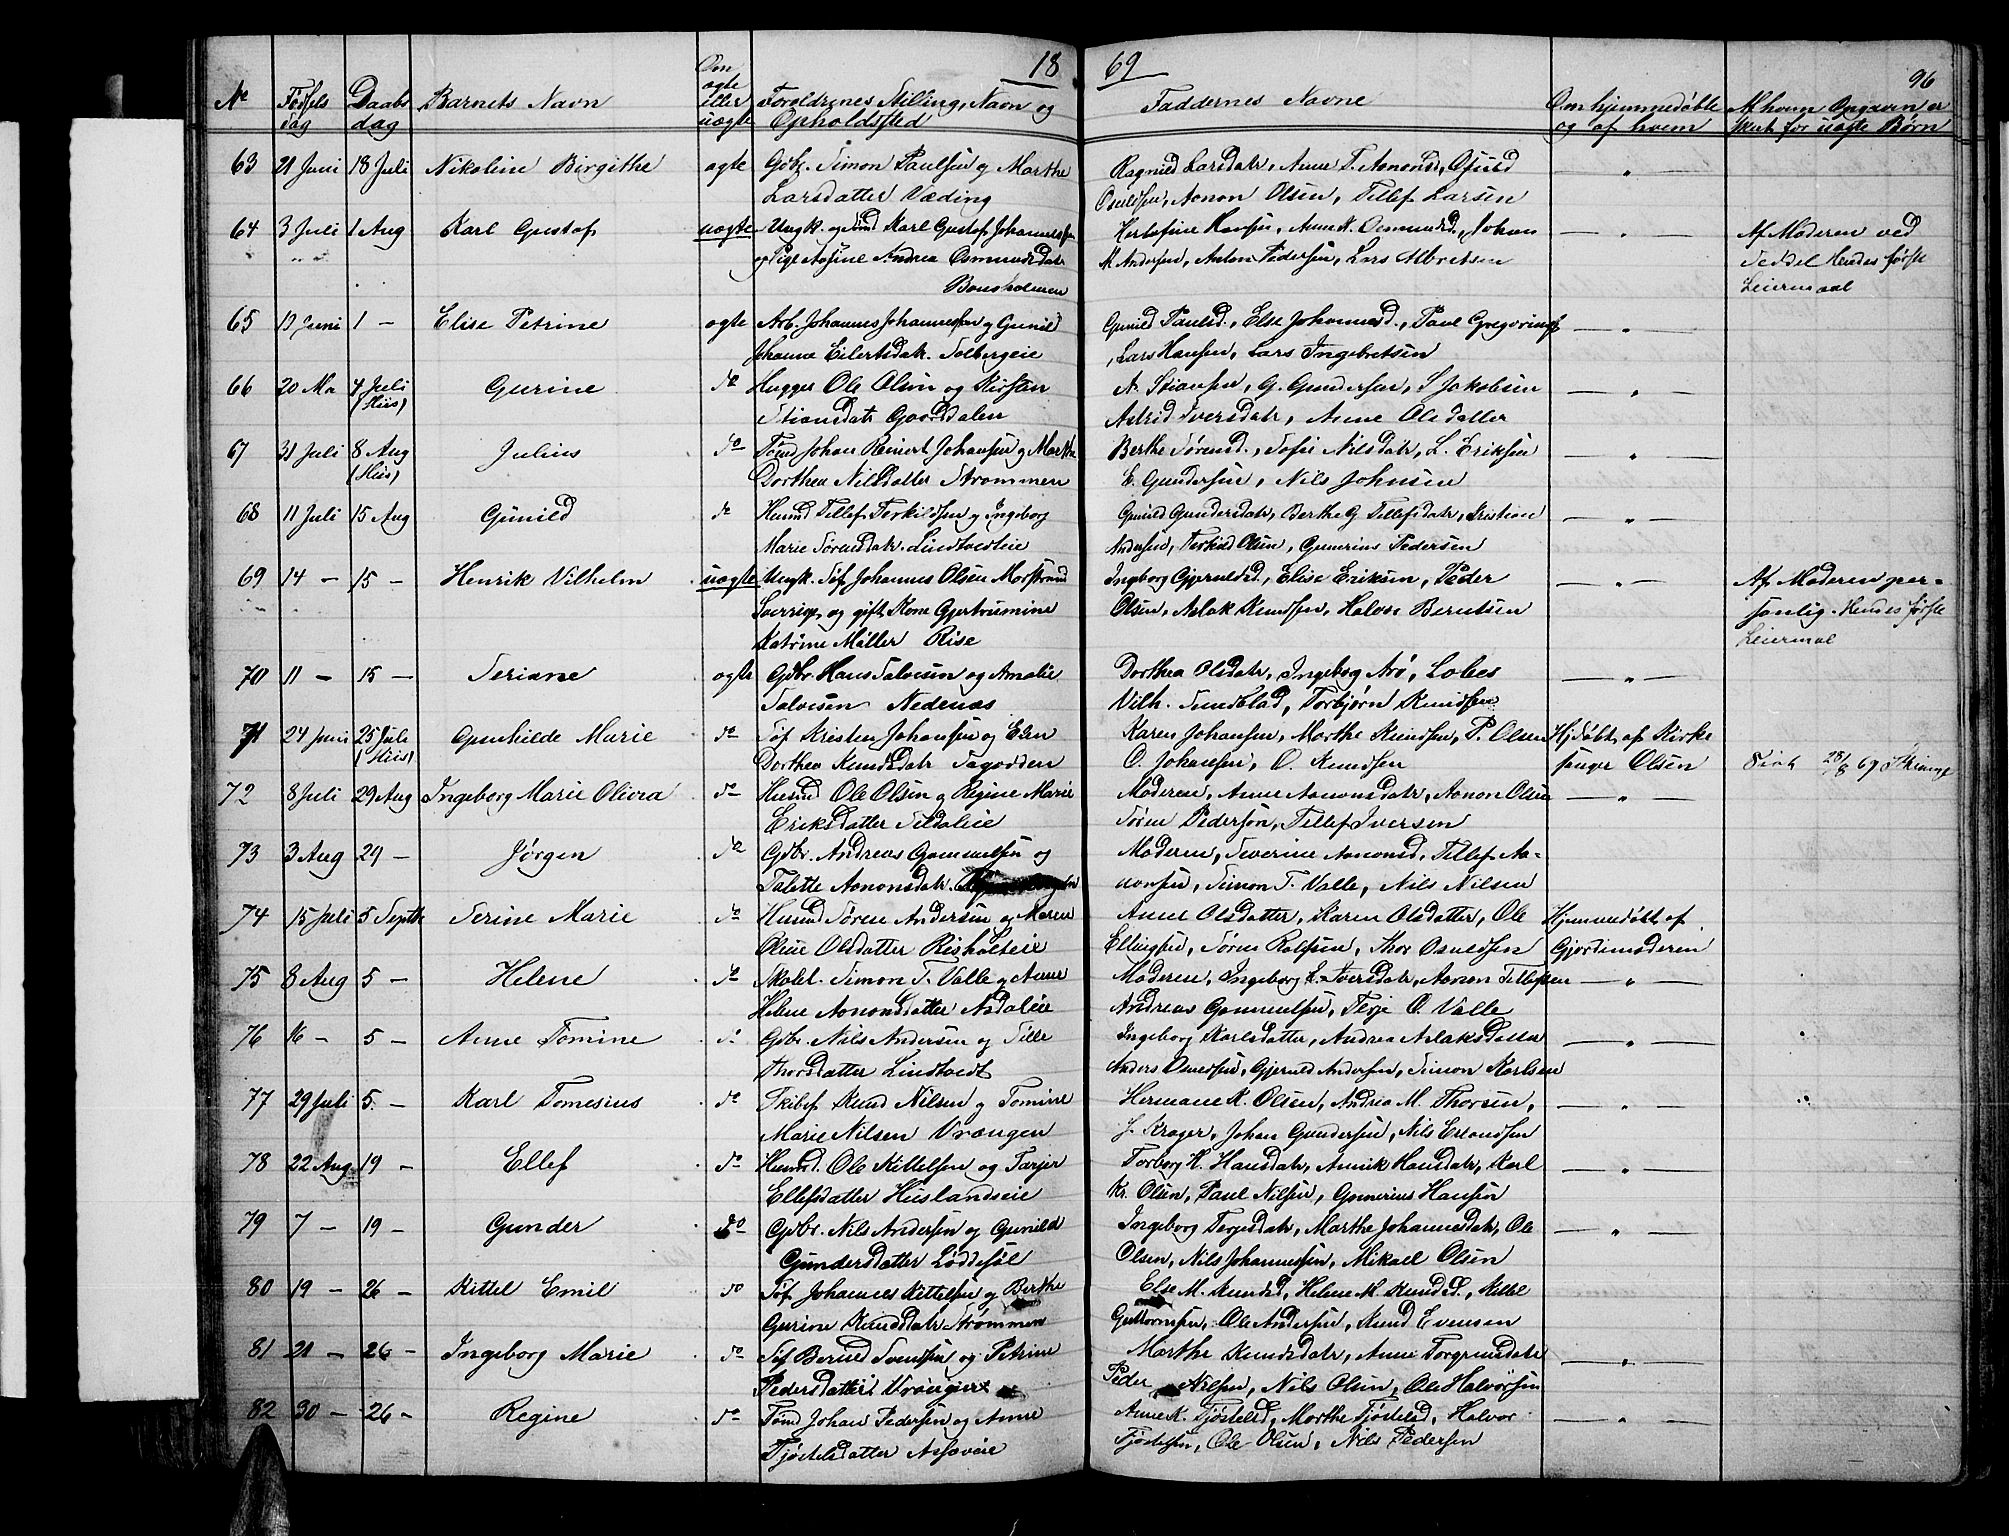 18 69
96
No Fødsels Dag Daabs dag Barnets Navn Om ægte eller uægte Foreldrenes Stilling, Navn og Opholdssted Faddernes Navne Om hjemmedøbte og af hvem Af hvem Opgaven er skeet for uægte Børn
63 21 Juni 18 Juli Nikoline Birgithe ægte Gdbr. Simon Paulsen og Marthe Ragnild Larsdatr, Anne T. Aanonsd,
Larsdatter Væding Osuldsen, Aanon Olsen, Tellef Larsen
64 3 Juli 1 Aug Karl Gustaf uægte Ungk. og Karl Gustaf Johannessen Hansen, Anne K. Osmundsd, Johan Af Moderen ved
og Pige Andrea Osmundsdatr M. Andersen, Anton Pedersen, Lars Albretsen Seddel Hendes første
Leiermaal
65 13 Juni 1 — Elise Petrine ægte Arb. Johannes Johannesen og Gunild Gunild Paulsd., Else Johannesd., Paul
Johanne Eilertsdatr. Solbergeie Lars Hansen, Lars Ingebretsen
66 20 4 Juli (Hiis) Gurine do Hugger Ole Olsen og Kirsten N. Stiansen, G. Gundersen, S Jakobsen
Stiansdatr Gaarddalen Astrid Iversdatr, Anne Olsdatter
67 31 Juli 8 Aug (Hiis) Julius do Tømd Johan Reinert Johansen og Marthe Berthe Sørensd., Sofie Nilsdatr, L. Eriksen
Dorthea Nilsdatter Strømmen E. Gundersen, Nils Johnsen
68 11 Juli 15 Aug Gunild do Husmd Tellef Terkildsen og Ingeborg Gunild Gundersdatr, Berthe G Tellefsdatr, Kristian
Marie Sørensdatr. Lindtvedteie Andersen, Terkild Olsen, Gunerius Pedersen
69 14 — 15 — Henrik Vilhelm uægte Ungk. Søf. Johannes Olsen Ingeborg Gjeruldsd., Elise Eriksen, Peder Af Moderen per-
Sverrige, og gift Kone Olsen, Aslak Knudsen, Halvor Berntsen sonlig. Hendes første
Katrine Møller Rise Leiermaal
70 11 — 15 — Teriane ægte Gdbr. Hans Salvesen og Amalie Dorthea Olsdatr, Ingeborg
Salvesen Nedenæs Vilh. Sundblad, Torbjørn Knudsen
71 24 Juni 25 Juli (Hiis) Gunhilde Marie do Søf Kristen Johansen og Elen Karen Johansen, Marthe Knudsen, P. Olsen Hjdøbt af Kirke
Dorthea Knudsdatr O. Johansen, O. Knudsen sanger Olsen 28/8 69
72 8 Juli 29 Aug Ingeborg Marie Olivia do Husmd Ole Olsen og Regine Marie Moderen, Anne Aanonsdatr, Aanon Olsen
Eriksdatter Seldaleie Søren Pedersen, Tellef Iversen
73 3 Aug 29 — Jørgen do Gdbr. Andreas Gommelsen og Moderen, Severine Aanonsd, Tellef Aa-
Talette Aanonsdatr. nonsen, Simon T. Valle, Nils Nilsen
74 15 Juli 5 Septb Serine Marie do Husmd Søren Andersen og Maren Anne Olsdatter, Karen Olsdatter, Ole Hjemmedøbt af
Oline Olsdatter Risholteie Ellingsen, Søren Rolfsen, Thor Osuldsen Gjordemoderen
75 8 Aug 5 — Helene do Skolel. Simon T. Valle og Anne Moderen, Ingeborg L. Iversdatr, Aanon Tellefsen
Helene Aanonsdatter Asdaleie Andreas Gommelsen, Terje O. Valle
76 16 — 5 — Anne Tomine Gdbr. Nils Andersen og Tille Ingeborg Karlsdatter, Andrea Aslaksdatter
Thorsdatter Lindtvedt Anders Osuldsen, Gjeruld Andersen, Simon Karlsen
77 29 Juli 5. — Karl Tomesius do Skibsf Knud Nilsen og Tomine Hermane K. Olsen, Andrea M. Thorsen,
Marie Nilsen Vrængen J. Krager, Johan Gundersen, Nils Erlandsen
78 22 Aug 19 — Ellef do Husmd. Ole Kittelsen og Tarjer Torborg K. Hansdatr, Annik Hansdatr, Karl
Ellefsdatter Huslandseie Kr. Olsen, Paul Nilsen, Gunerius Hansen
79 7 — 19 — Gunder do Gdbr. Nils Andersen og Gunild Ingeborg Terjesdatr, Marthe Johannesdatr, Ole
Gundersdatter Løddesøl Olsen, Nils Johannessen, Mikael Olsen
80 19 — 26 — Kittel Emil do Søf Johannes Kittelsen og Berthe Else M. Knudsd, Helene M. Knudsd., Kittel
Gurine Knudsdatr Strømmen Guttormsen, Ole Andersen, Knud Evensen
81 21 — 26 — Ingeborg Marie do Søf Bernt Svendsen og Petrine Marthe Knudsdatr, Anne Torgrimsdatr
Pedersdatter Peder Nilsen, Nils Olsen, Ole Halvorsen
82 30 — 26 — Regine do Tømd Johan Pedersen og Anne Anne K. Tjøstelsd, Marthe Tjøstelsd, Halvor
Tjøstelsdatter Tjøstelsen, Ole Olsen, Nils Pedersen